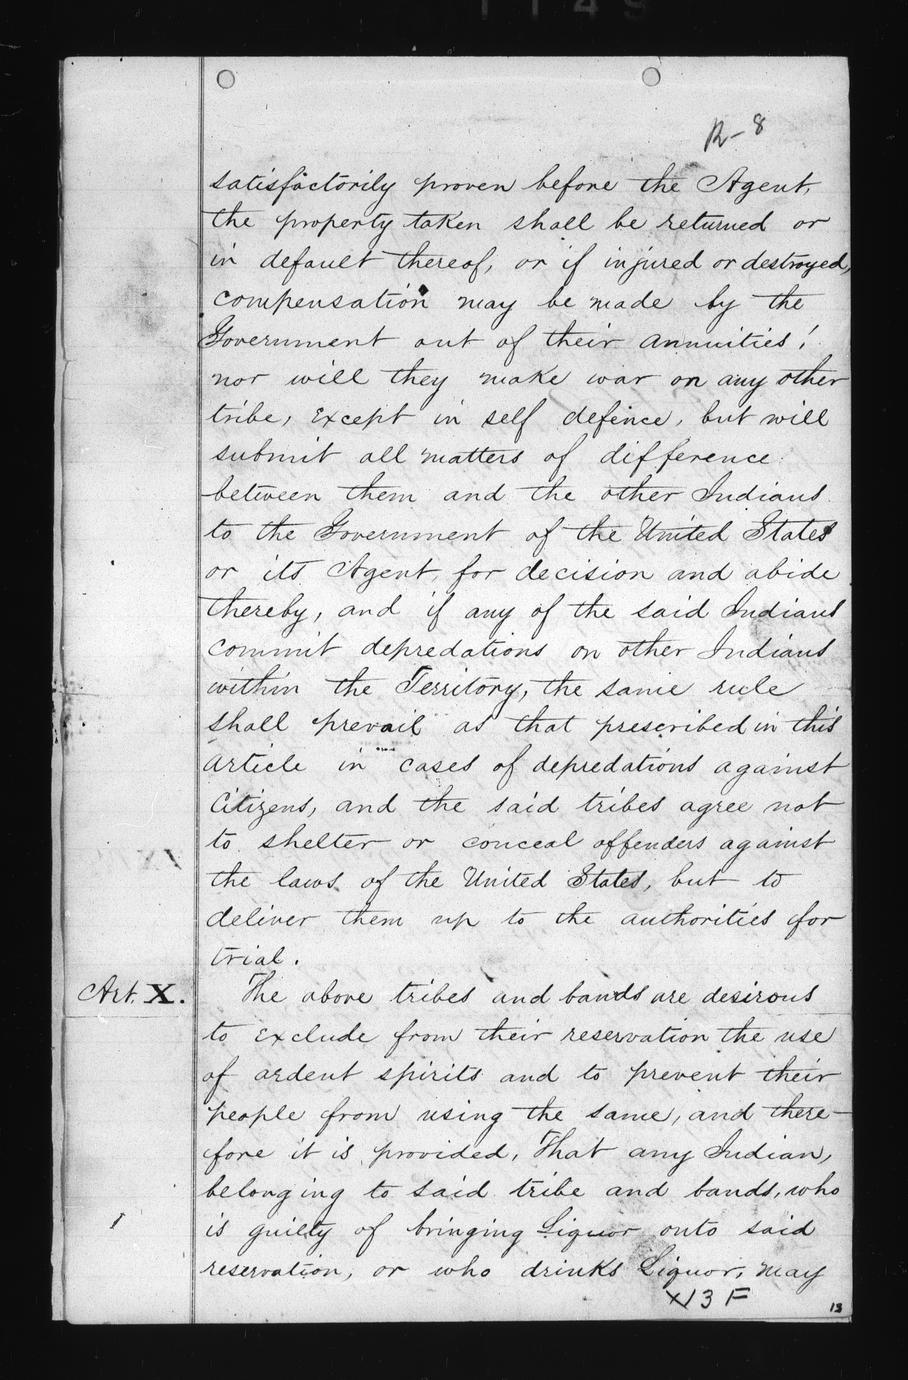 R-8
satisfactorily proven before the Agent,
the property taken shall be returned or
in default thereof, or if injured or destroyed,
compensation may be made by the
Government out of their annuities;
nor will they make war on any other
tribe, except in self defence, but will
submit all matters of difference
between them and the other Indians
to the Government of the United States
or its Agent, for decision and abide
thereby, and if any of the said Indians
commit depredations on other Indians
within the Territory, the same rule
shall prevail as that prescribed in this
article in cases of depredations against
Citizens, and the said tribes agree not
to shelter or conceal offenders against
the laws of the United States, but to
deliver them up to the authorities for
trial.
Art. X. The above tribes and bands are desirous
to exclude from their reservation the use
of ardent spirits and to prevent their
people from using the same, and there-
fore it is provided, That any Indian,
belonging to said tribe and bands, who
is guilty of bringing Liquor onto said
reservation, or who drinks Liquor, may
X13 F
13